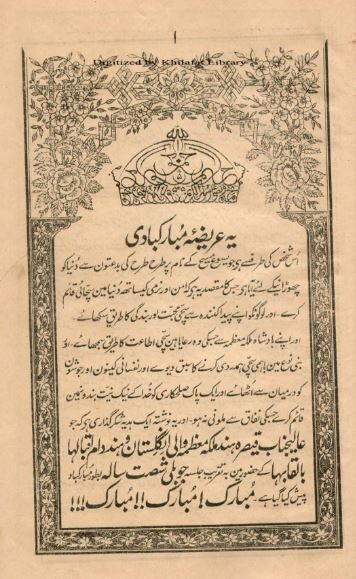 ۱
Digitized by Khilafat Library
یہ عریضۂ مبارکبادی
اس شخص کی طرف سے ہی جو یسوع مسیح کے نام پر طرح طرح کی بدعتون سے دنیا کو
چھوڑانیکے لئے آیا ہی جسکا مقصد یہ ہی کہ امن اور نرمی کیساتھ دنیا مین سچائی قائم
کرے اور لوگونکو اپنے پیدا کنندہ سے سچی محبت اور بندگی کا طریق سکھائے
اور اپنے بادشاہ ملکہ معظمہ سے جسکی وہ رعایا ہین سچی اطاعت کا طریق سمجھائے اور
بنی نوع مین باہمی سچی ہمدردی کرنے کا سبق دیوے اور نفسانی کینون اور جوشون
کو درمیان سے اٹھائے اور ایک پاک صلحکاری کو خدا کے نیک نیت بندونمین
قائم کرے جسکی نفاق سے ملونی نہ ہو اور یہ نوشتہ ایک ہدیہ شکرگذاری ہی کہ جو
عالیجناب قیصرہ ہند ملکہ معظمہ والی انگلستان و ہند دام اقبالہا
بالقابہا کے حضور مین بہ تقریب جلسہ جوبلی شصت سالہ بطور مبارکباد
پیش کیا گیا ہے۔ مبارک! مبارک!! مبارک!!!